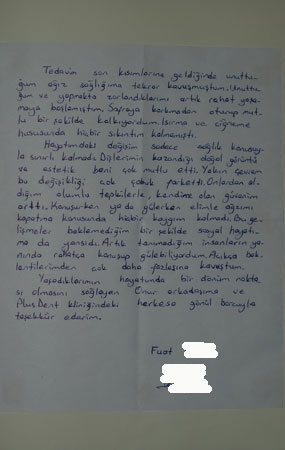 Tedavim son kısımlarına geldiğinde unuttu-
ğum ağız sağlığıma tekrar kavuşmuştum. Unuttu-
ğum ve yapmakta zorlandıklarımı artık rahat yapa-
maya başlamıştım. Sofraya korkmadan oturup mut-
lu bir şekilde kalkıyordum. Isırma ve çiğneme
hususunda hiçbir sıkıntım kalmamıştı.
Hayatımdaki değişim sadece sağlık konusuy-
la sınırlı kalmadı. Dişlerimin kazandığı doğal görüntü
ve estetik beni çok mutlu etti. Yakın çevrem
bu değişikliği çok çabuk farketti. Onlardan al-
dığım olumlu tepkilerle, kendime olan güvenim
arttı. Konuşurken ya da gülerken elimle ağzımı
kapatma konusunda hiçbir kaygım kalmadı. Bu ge-
lişmeler beklemediğim bir şekilde sosyal hayatı-
ma da yansıdı. Artık tanımadığım insanların ya-
nında rahatça konuşup gülebiliyordum. Açıkça bek-
lentilerimden çok daha fazlasına kavuştum.
Yaşadıklarımın hayatımda bir dönüm nokta-
sı olmasını sağlayan Onur arkadaşıma ve
Plus Dent kliniğindeki herkese gönül borcuyla
teşekkür ederim.
Fuat